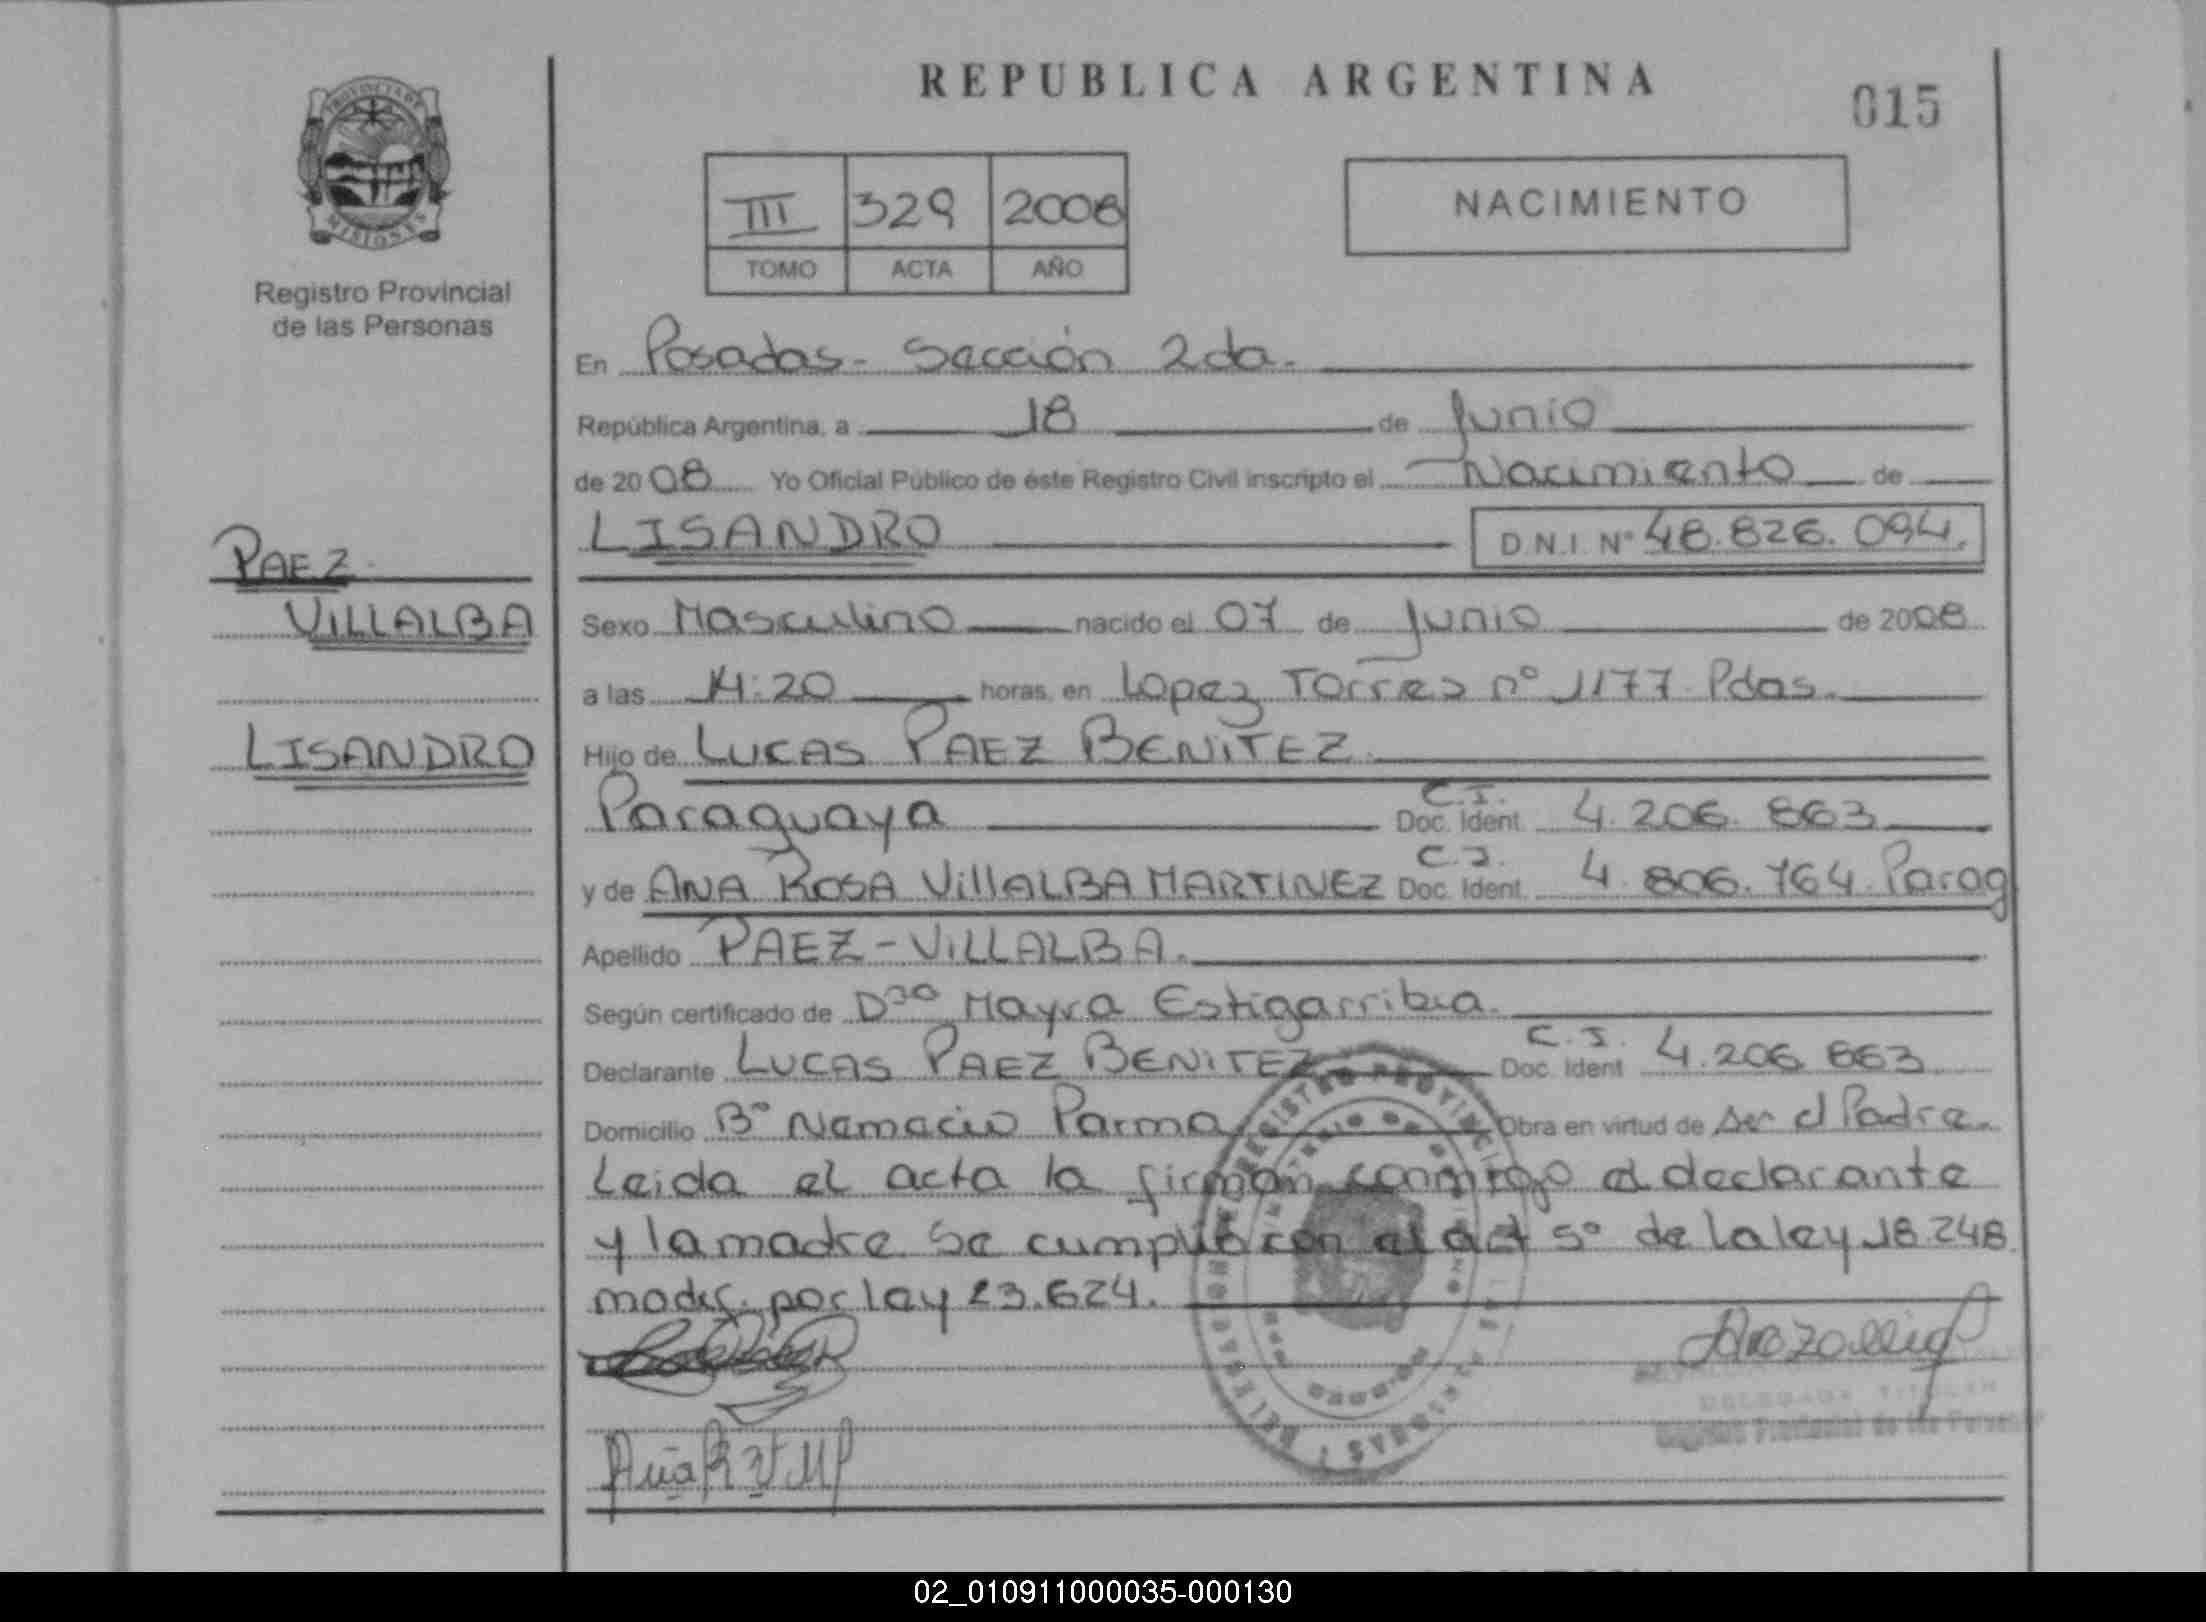 REPUBLICA ARGENTINA
015
PROVINCIA DE
MISIONES
Registro Provincial
de las Personas
III 329 2008
TOMO ACTA AÑO
NACIMIENTO
En Posadas - Sección 2da.
República Argentina, a 18 de Junio
de 2008 Yo Oficial Público de éste Registro Civil inscripto el Nacimiento de
LISANDRO D.N.I. Nº 48.826.094.
PAEZ
VILLALBA
LISANDRO
Sexo Masculino nacido el 07 de Junio de 2008
a las 14:20 horas, en Lopez Torres nº 1177 Pdas.
Hijo de LUCAS PAEZ BENITEZ.
Paraguaya C.I. Doc. Ident 4.206.863
y de ANA ROSA VILLALBA MARTINEZ C.I. Doc. Ident 4.806.764 Parag
Apellido PAEZ - VILLALBA.
Según certificado de Dra Mayra Estigarribia.
Declarante LUCAS PAEZ BENITEZ C.I. Doc. Ident 4.206.863
Domicilio Bº Nemacio Parma Obra en virtud de ser el Padre.
Leida el acta la firman conmigo el declarante
y la madre Se cumplió con el art 5º de la ley 18.248
modif. por ley 23.624.
DELEGADA TITULAR
Registro Provincial de las Personas
02_010911000035-000130